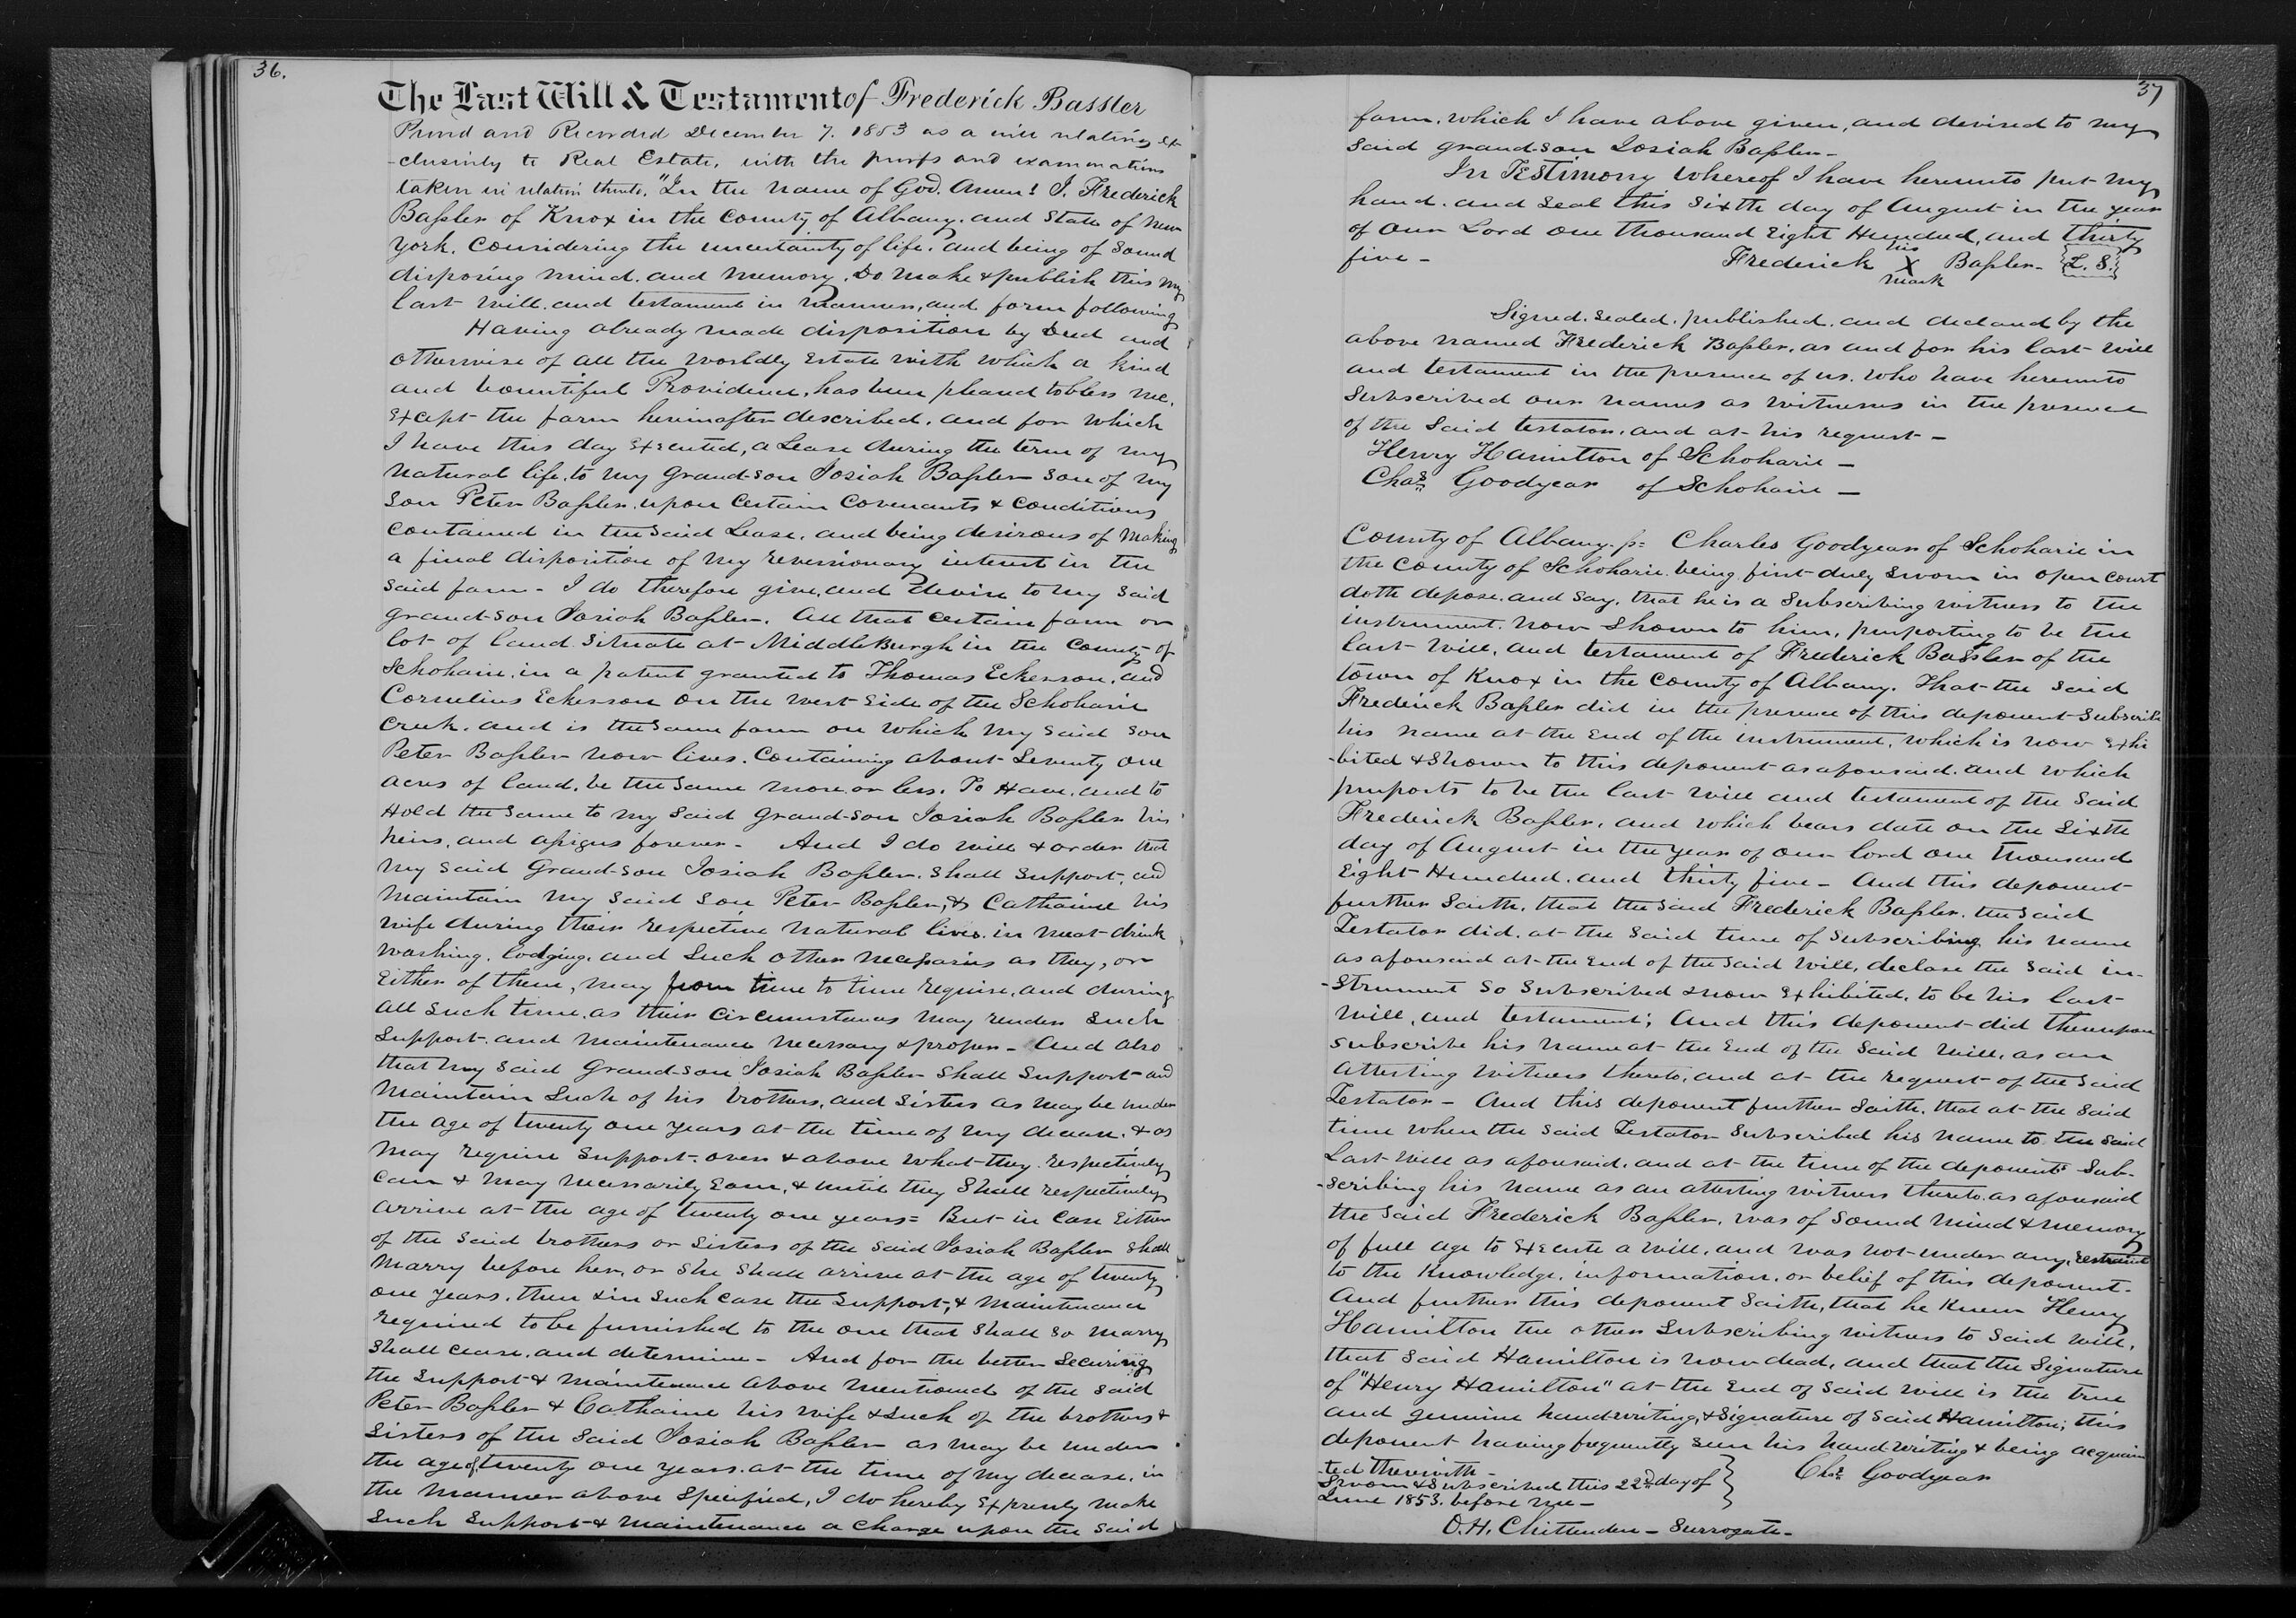 36.
The Last Will & Testament of Frederick Bassler
Proved and Recorded December 7. 1853 as a will relating ex-
-clusively to Real Estate, with the proofs and examinations
taken in relation thereto. "In the name of God. Amen! I, Frederick
Baſsler of Knox in the County of Albany. and State of New
York. Considering the uncertainty of life. and being of sound
disposing mind. and memory. Do make & publish this my
last will. and testament in manner, and form following
Having already made disposition by Deed and
otherwise of all the worldly Estate with which a kind
and bountiful Providence, has been pleased to bless me.
Except the farm hereinafter described. and for which
I have this day Executed, a Lease during the term of my
natural life. to my grand-son Josiah Baſsler son of my
son Peter Baſsler. upon certain covenants & conditions
contained in the said Lease. and being desirous of making
a final disposition of my reversionary interest in the
said farm - I do therefore give, and devise to my said
grand-son Josiah Baſsler. All that certain farm or
lot of land situate at MiddleBurgh in the County of
Schoharie, in a patent granted to Thomas Eckerson, and
Cornelius Eckerson on the west side of the Schoharie
creek. and is the same farm on which my said son
Peter Baſsler now lives. Containing about Seventy one
acres of land. be the same more or less. To Have. and to
Hold the same to my said grand-son Josiah Baſsler his
heirs, and aſsigns forever - And I do will & order that
my said Grand-son Josiah Baſsler. shall support, and
maintain my said son Peter Baſsler, & Catharine his
wife during their respective natural lives. in meat-drink
washing. lodging. and such other neceſsaries as they, or
Either of them, may from time to time require, and during
all such time, as their circumstances may render such
support. and maintenance necessary & proper - And also
that my said Grand-son Josiah Baſsler shall support and
maintain such of his brothers, and sisters as may be under
the age of twenty one years at the time of my decease. & as
may require support. over & above what they respectively
can & may necessarily Earn, & until they shall respectively
arrive at the age of twenty one years = But in case Either
of the said brothers or sisters of the said Josiah Baſsler shall
marry before her, or she shall arrive at the age of twenty
one years. then & in such case the support, & maintenance
required to be furnished to the one that shall so marry
shall cease. and determine - And for the better securing
the support & maintenance above mentioned of the said
Peter Baſsler & Catharine his wife & such of the brothers &
sisters of the said Josiah Baſsler as may be under
the age of twenty one years. at the time of my decease. in
the manner above specified, I do hereby Expressly make
such support & maintenance a charge upon the said
37
farm. which I have above given, and devised to my
said grand-son Josiah Baſsler -
In Testimony Whereof I have hereunto put my
hand. and seal this sixth day of August in the year
of our Lord one thousand Eight Hundred, and thirty
five -
his
Frederick X Baſsler - {L. S.}
mark
Signed. sealed. published. and declared by the
above named Frederick Baſsler. as and for his last will
and testament in the presence of us. who have hereunto
subscribed our names as witnesses in the presence
of the said testator. and at his request -
Henry Hamilton of Schoharie -
Chas. Goodyear of Schoharie -
County of Albany. ſs= Charles Goodyear of Schoharie in
the County of Schoharie. being first duly sworn in open court
doth depose. and say. that he is a subscribing witness to the
instrument. now shown to him, purporting to be the
last will, and testament of Frederick Bassler of the
town of Knox in the County of Albany. That the said
Frederick Baſsler did in the presence of this deponent subscribe
his name at the End of the instrument, which is now Exhi
-bited & shown to this deponent as aforesaid. and which
purports to be the last will and testament of the said
Frederick Baſsler, and which bears date on the sixth
day of August in the year of our lord one thousand
Eight Hundred. and thirty five - And this deponent
further saith, that the said Frederick Baſsler. the said
Testator did. at the said time of subscribing his name
as aforesaid at the End of the said will, declare the said in-
-strument so subscribed & now Exhibited, to be his last
will, and testament; And this deponent did thereupon
subscribe his name at the End of the said will, as an
attesting witness thereto, and at the request of the said
Testator - And this deponent further saith. that at the said
time when the said Testator subscribed his name to the said
Last will as aforesaid. and at the time of the deponents sub-
-scribing his name as an attesting witness thereto. as aforesaid
the said Frederick Baſsler, was of sound mind & memory
of full age to Execute a will, and was not under any restraint
to the knowledge, information, or belief of this deponent.
And further this deponent saith, that he knew Henry
Hamilton the other subscribing witness to said will,
that said Hamilton is now dead, and that the signature
of "Henry Hamilton" at the End of said will is the true
and genuine handwriting, & signature of said Hamilton; this
deponent having frequently seen his hand writing & being acquain
-ted therewith -
Sworn & subscribed this 22d day of } Chas. Goodyear
June 1853. before me -
O. H. Chittenden - Surrogate -